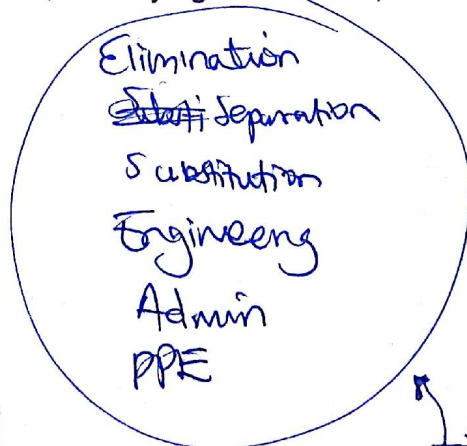 Elimination
Separation
Substitution
Engineeng
Admin
PPE